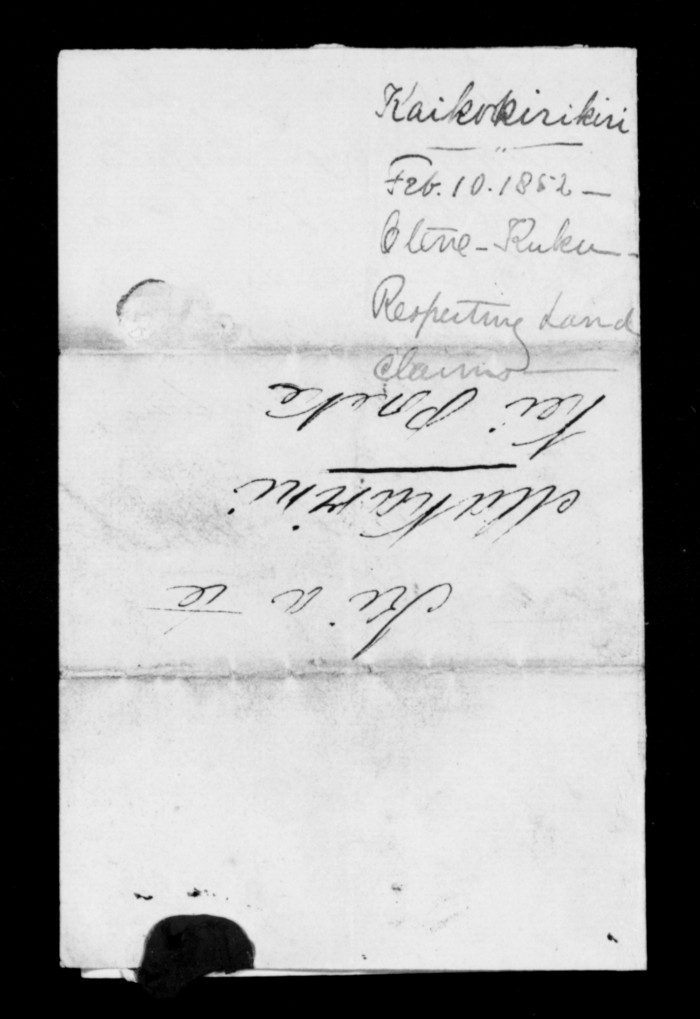 Kaikokirikiri
Feb. 10. 1852 —
Etene - Kuku -
Respecting Land
Claims
Ki a te
Makarini
Kei Poneke